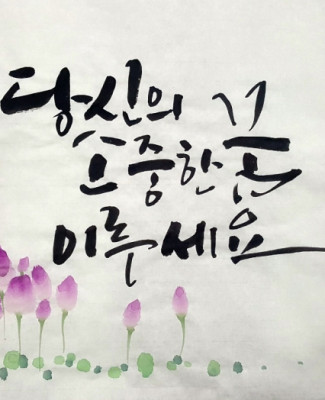 당신의
소중한 꿈
이루세요